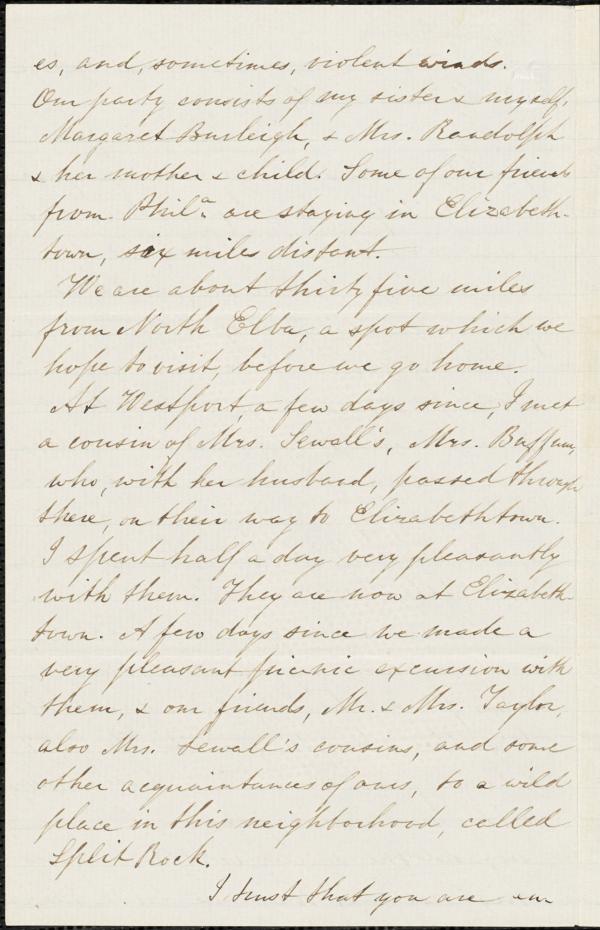 es, and, sometimes, violent winds.
Our party consists of my sister & myself,
Margaret Burleigh, & Mrs. Randolph
& her mother & child. Some of our friends
from Phil.a are staying in Elizabeth-
town, six miles distant.
We are about thirty five miles
from North Elba, a spot which we
hope to visit, before we go home.
At Westport a few days since, I met
a cousin of Mrs. Sewall's, Mrs. Buffum,
who, with her husband, passed through
there, on their way to Elizabethtown.
I spent half a day very pleasantly
with them. They are now at Elizabeth-
town. A few days since we made a
very pleasant picnic excursion with
them, & our friends, Mr. & Mrs. Taylor,
also Mrs. Sewall's cousins, and some
other acquaintances of ours, to a wild
place in this neighborhood, called
Split Rock.
I trust that you are en